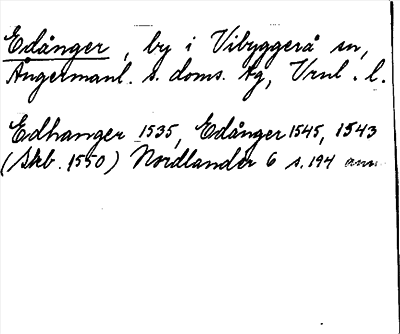 Edånger, by i Vibyggerå sn,
Ångermanl. s. doms. tg, Vrnl. l.
Edhanger 1535, Edånger 1545, 1543
(Skb. 1550) Nordlander 6 s. 194 anm